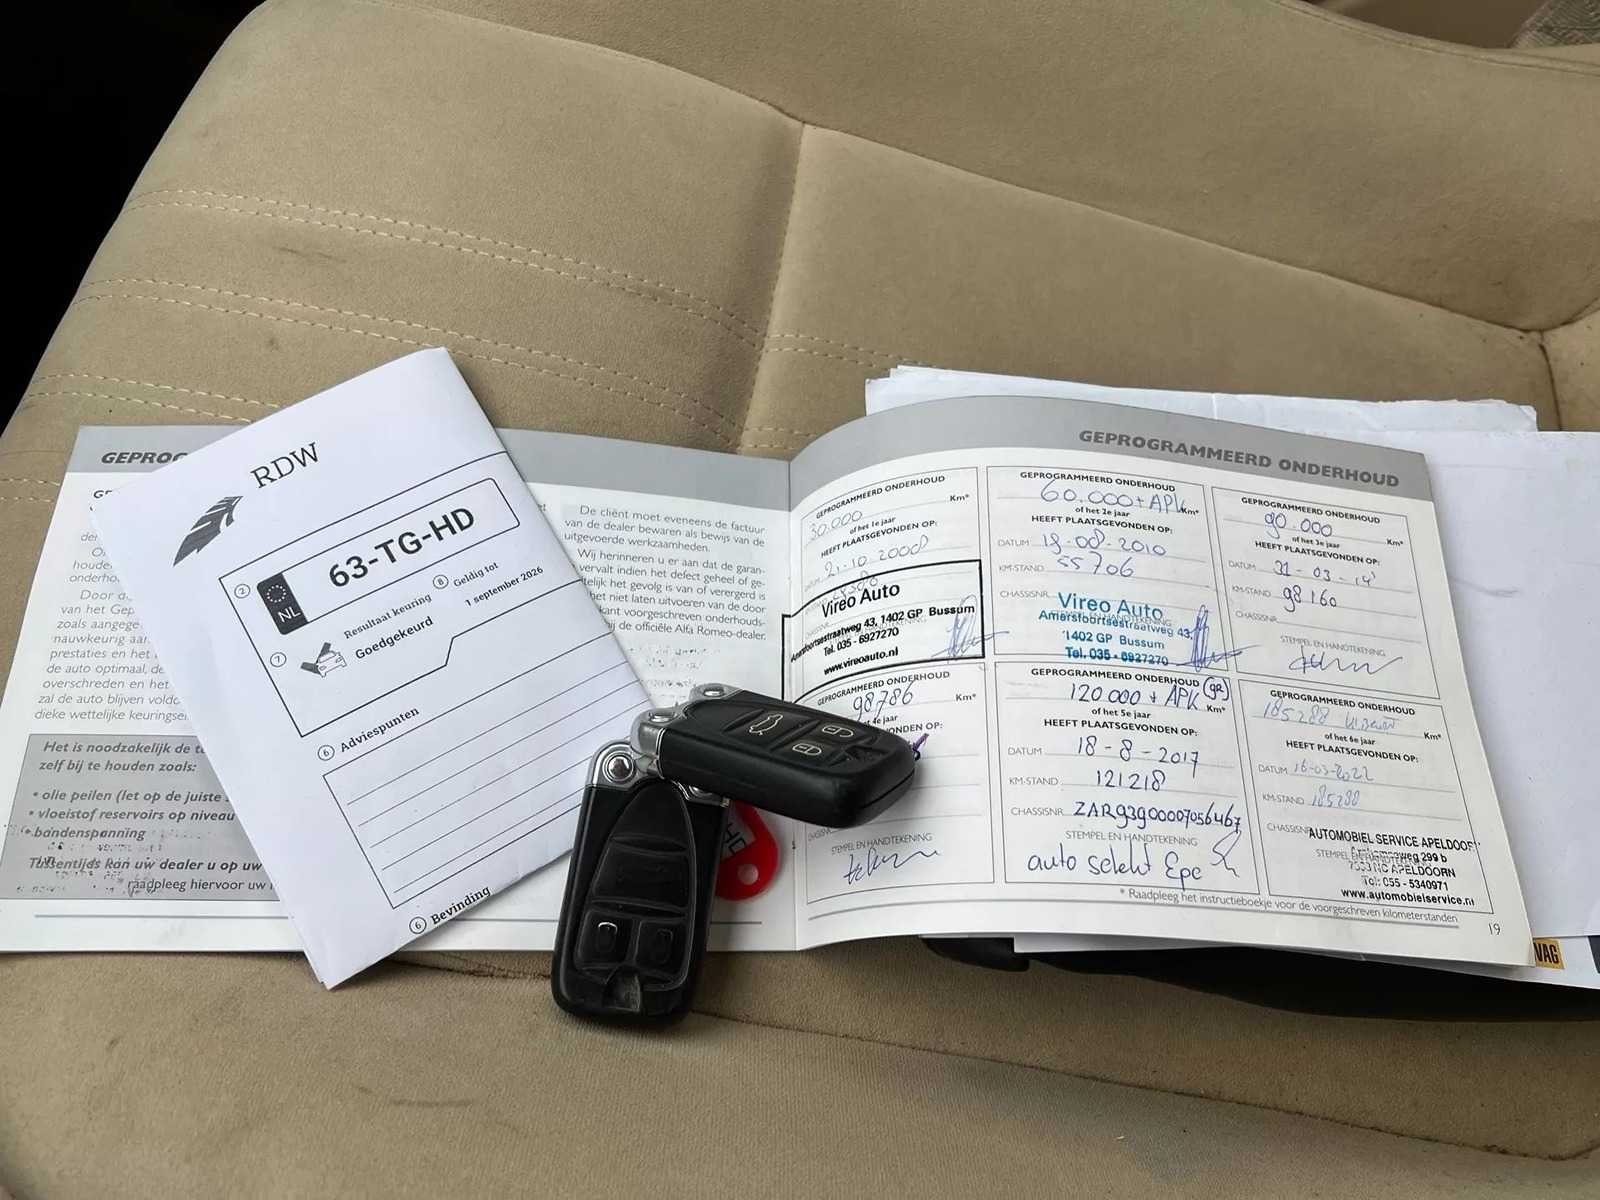 RDW
2
NL
63-TG-HD
7
Resultaat keuring
Goedgekeurd
8 Geldig tot
1 september 2026
6 Adviespunten
6 Bevinding
GEPROG
Het is noodzakelijk de
zelf bij te houden zoals:
• olie peilen (let op de juiste
• vloeistof reservoirs op niveau
• bandenspanning
Tussentijds kan uw dealer u op uw
raadpleeg hiervoor uw
van het Gep
zoals aangege
nauwkeurig aan
prestaties en het
de auto optimaal, de
overschreden en het
zal de auto blijven voldo
dieke wettelijke keuringse
De cliënt moet eveneens de factuur
van de dealer bewaren als bewijs van de
uitgevoerde werkzaamheden.
Wij herinneren u er aan dat de garan-
vervalt indien het defect geheel of ge-
telijk het gevolg is van of verergerd is
het niet laten uitvoeren van de door
kant voorgeschreven onderhouds-
ij de officiële Alfa Romeo-dealer.
GEPROGRAMMEERD ONDERHOUD
GEPROGRAMMEERD ONDERHOUD
30.000 Km*
of het 1e jaar
HEEFT PLAATSGEVONDEN OP:
DATUM 21-10-2008
Vireo Auto
Amersfoortsestraatweg 43, 1402 GP Bussum
Tel. 035 - 6927270
www.vireoauto.nl
GEPROGRAMMEERD ONDERHOUD
60.000 + APK Km*
of het 2e jaar
HEEFT PLAATSGEVONDEN OP:
DATUM 19-08-2010
KM-STAND 55706
CHASSISNR.
Vireo Auto
STEMPEL EN HANDTEKENING
Amersfoortsestraatweg 43,
1402 GP Bussum
Tel. 035 - 6927270
GEPROGRAMMEERD ONDERHOUD
90.000 Km*
of het 3e jaar
HEEFT PLAATSGEVONDEN OP:
DATUM 21-03-14
KM-STAND 98160
CHASSISNR.
STEMPEL EN HANDTEKENING
GEPROGRAMMEERD ONDERHOUD
98786 Km*
4e jaar
VONDEN OP:
STEMPEL EN HANDTEKENING
GEPROGRAMMEERD ONDERHOUD
120.000 + APK (gr) Km*
of het 5e jaar
HEEFT PLAATSGEVONDEN OP:
DATUM 18-8-2017
KM-STAND 121218
CHASSISNR. ZAR93900007056467
STEMPEL EN HANDTEKENING
auto selekt Epe
GEPROGRAMMEERD ONDERHOUD
185288 Km*
of het 6e jaar
HEEFT PLAATSGEVONDEN OP:
DATUM 16-03-2022
KM-STAND 185288
CHASSISNR.
AUTOMOBIEL SERVICE APELDOORN
STEMPEL EN HANDTEKENING
weg 299 b
APELDOORN
Tel: 055 - 5340971
www.automobielservice.nl
* Raadpleeg het instructieboekje voor de voorgeschreven kilometerstanden
19
VAG